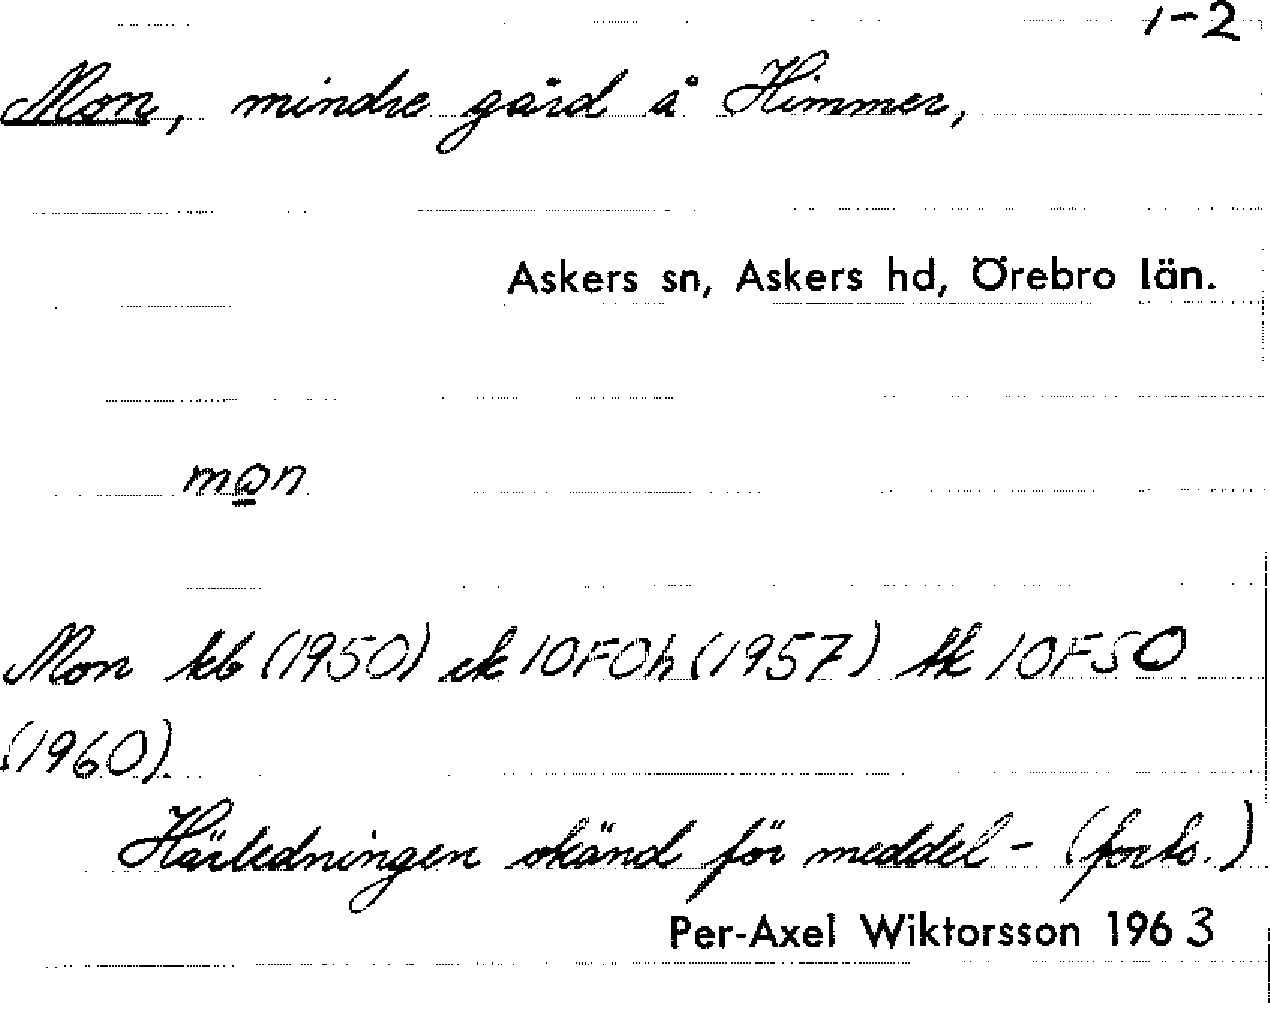 1-2
Mon, mindre gård å Himmer,
Askers sn, Askers hd, Örebro län.
mo̲n
Mon kb (1950) ek 10F0h (1957) tk 10FSO
(1960).
Härledningen okänd för meddel- (forts.)
Per-Axel Wiktorsson 1963